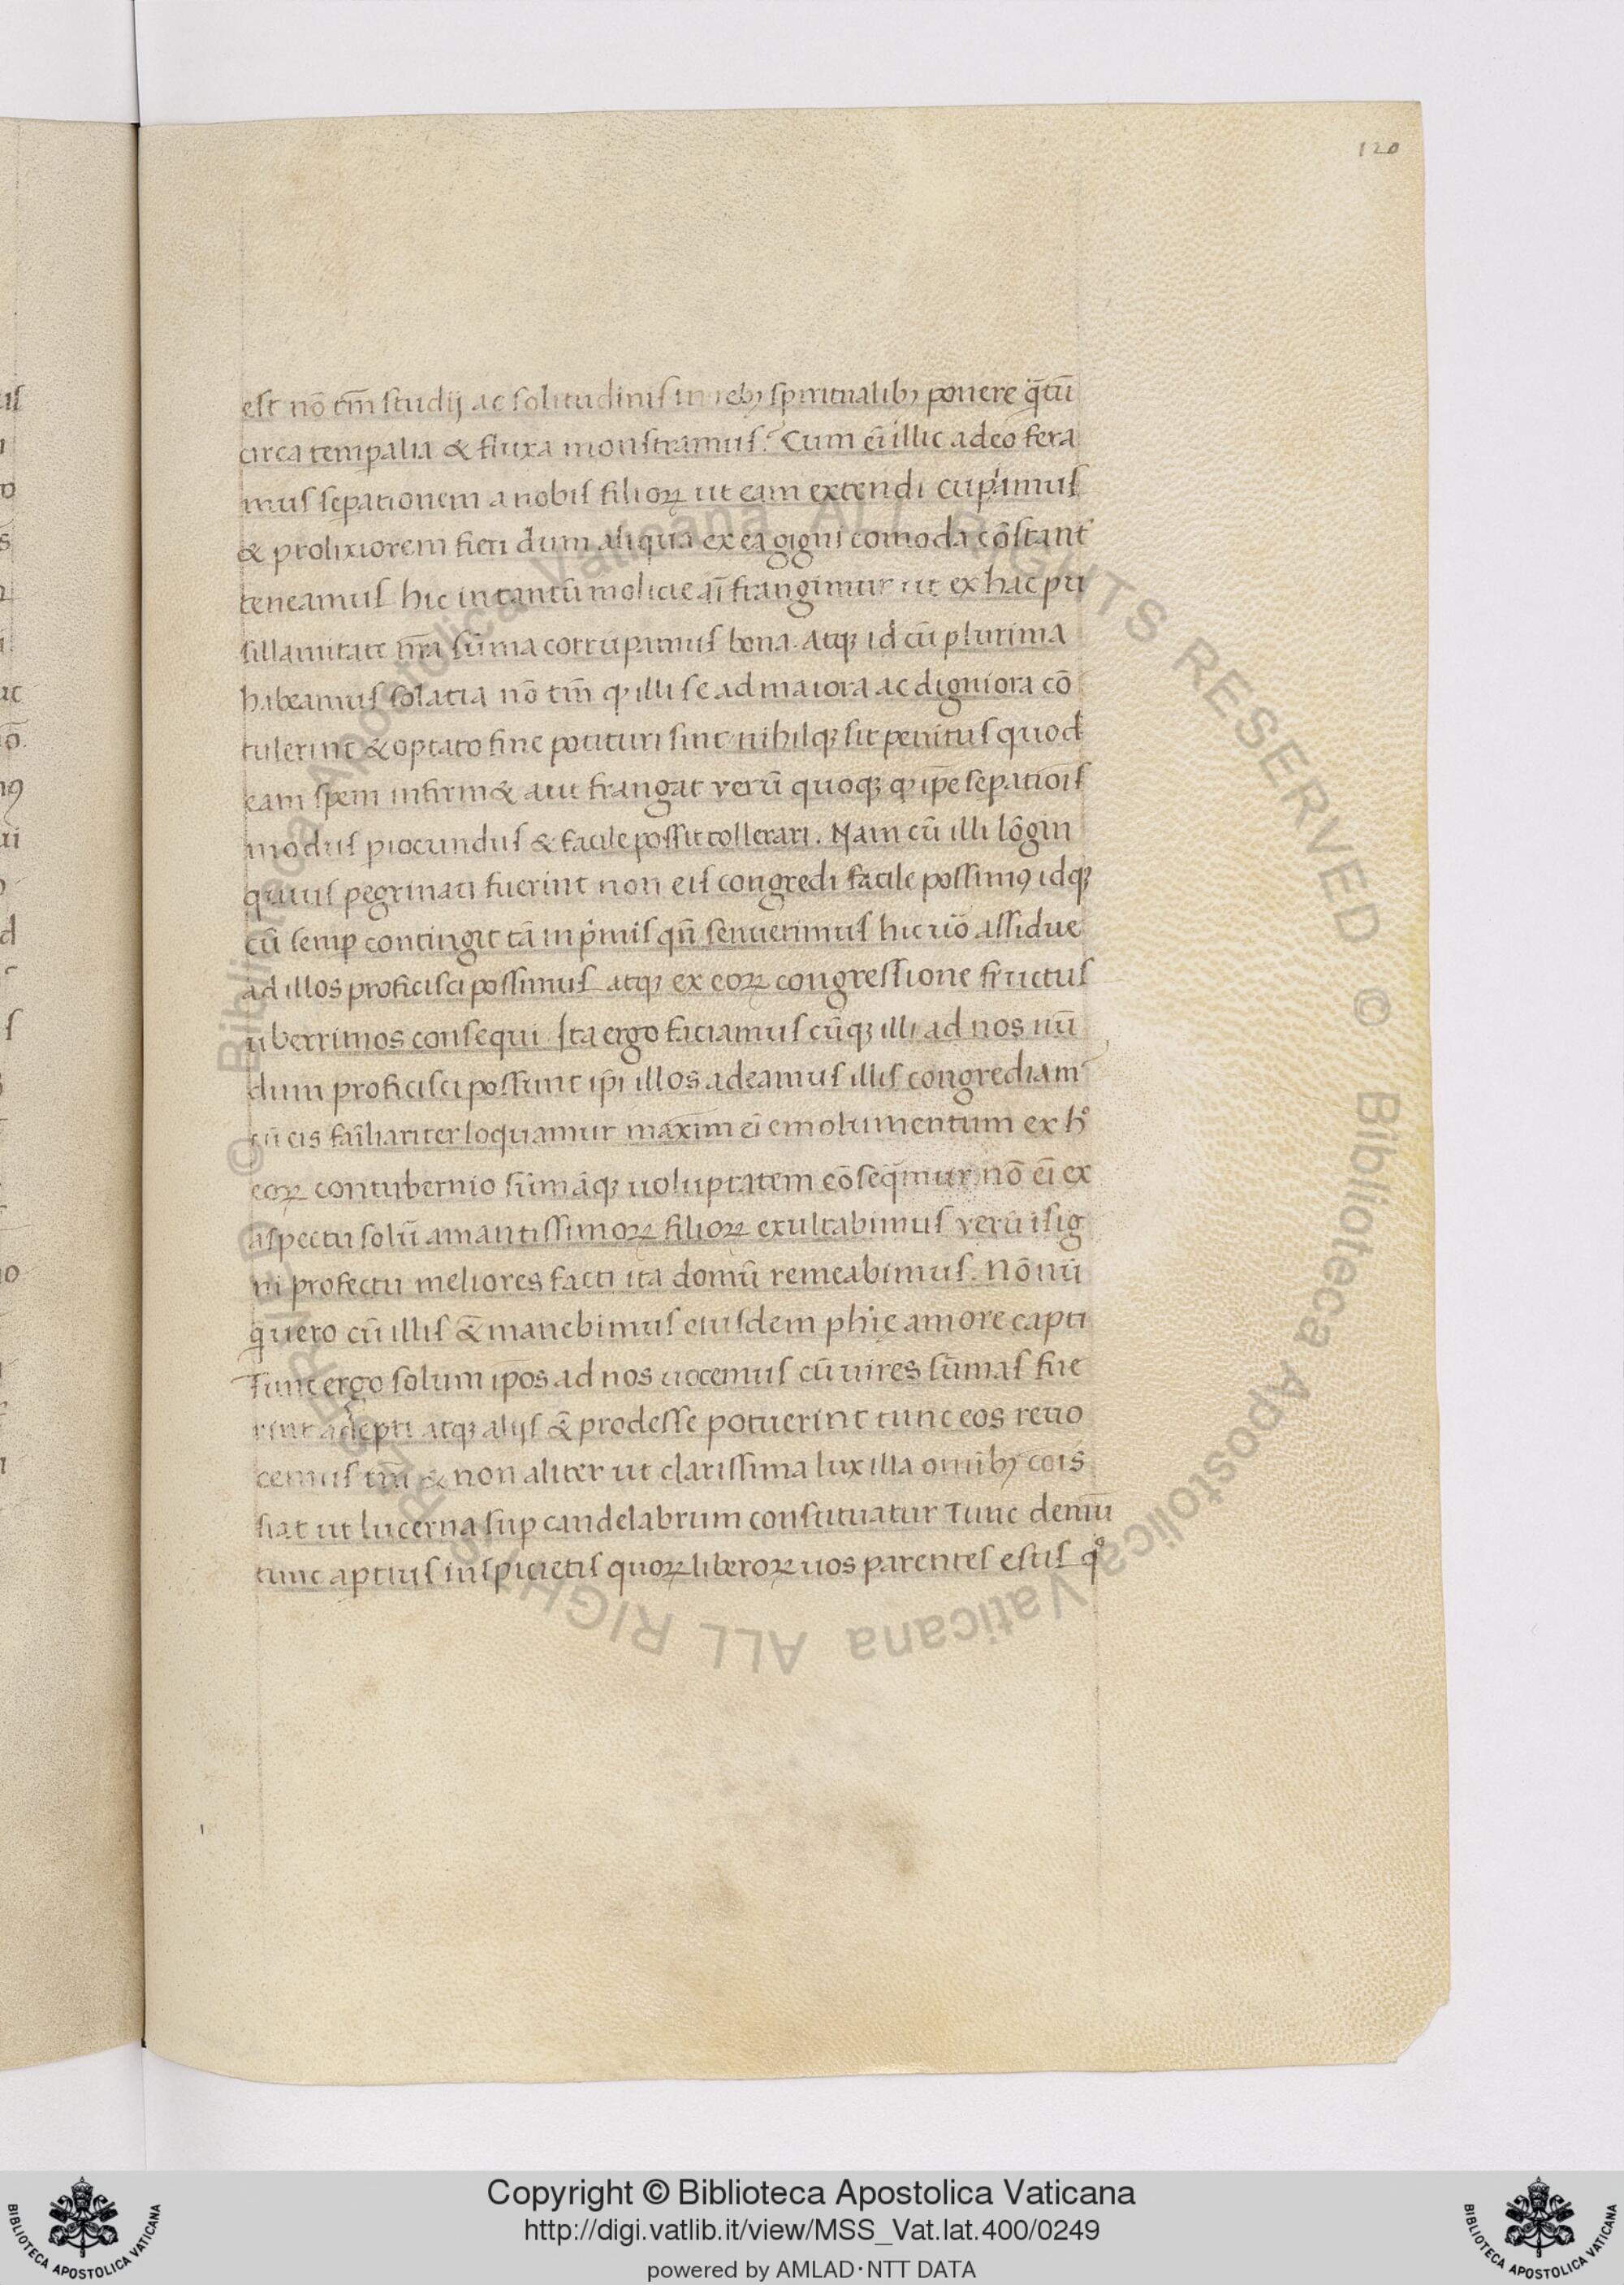 120
est nō tm̄ studij ac solitudinis in rebꝫ spiritualibꝫ ponere q̄tū
circa temꝑalia & fluxa monstramus? Cum ei illic adeo fera
mus seꝑationem a nobis filioꝝ ut eam extendi cupimus
& prolixiorem fieri dum aliqua ex ea gigni comoda cōstant̉
teneamus hic in tantū molicie ai frangimur ut ex hac pu
sillanimitate nr̄a sūma corrupamus bona. Atqꝫ id cū plurima
habeamus solatia nō tm̄ ꝙ illi se ad maiora ac digniora cō
tulerint & optato fine potituri sint nihilqꝫ sit penitus quod
eam spem infirm& aut frangat verū quoqꝫ ꝙ ip̄e seꝑatiōis
modus ꝑiocundus & facile possit tollerari. Nam cū illi lōgin
quius ꝑegrinati fuerint non eis congredi facile possimꝰ idqꝫ
cū semꝑ contingit tā inp̄mis qn̄ senuerimus hic uo assidue
ad illos proficisci possimus atqꝫ ex eoꝝ congressione fructus
uberrimos consequi. Ita ergo faciamus cūqꝫ illi ad nos nū
dum proficisci possunt ip̄i illos adeamus illis congrediam̉
cū eis familiariter loquamur maxim ei emolumentum ex hͦ
eoꝝ contubernio sūmāqꝫ uoluptatem cōseq̄mur nō ei ex
aspectu solū amantissimoꝝ filioꝝ exultabimus verū isig
ni profectu meliores facti ita domū remeabimus. Nōnū
ꝗ uero cū illis &̄ manebimus eiusdem ph̄ie amore capti
Tunc ergo solum ip̄os ad nos uocemus cū uires sūmas fue
rint adepti atqꝫ alijs &̄ prodesse potuerint tunc eos reuo
cemus tm̄ & non aliter ut clarissima lux illa omībꝫ cōis
fiat ut lucerna suꝑ candelabrum constituatur Tunc demū
tunc aptius inspicietis quoꝝ liberoꝝ uos parentes estis qͦ
Copyright © Biblioteca Apostolica Vaticana
http://digi.vatlib.it/view/MSS_Vat.lat.400/0249
powered by AMLAD·NTT DATA
BIBLIOTECA APOSTOLICA VATICANA
BIBLIOTECA APOSTOLICA VATICANA
© Biblioteca Apostolica Vaticana ALL RIGHTS RESERVED © Biblioteca Apostolica Vaticana ALL RIGHTS RESERVED